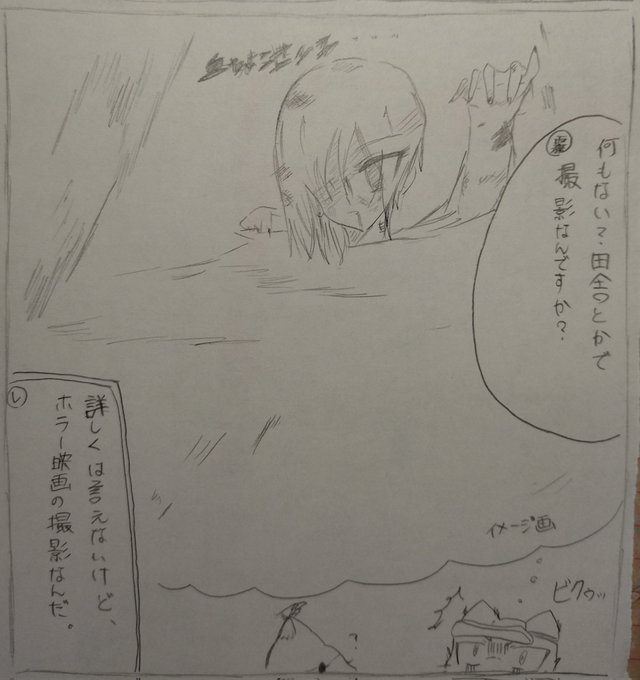 何もない？田舎とかで
撮影なんですか？
イメージ画
ビクゥッ
？
詳しくは言えないけど、
ホラー映画の撮影なんだ。
し